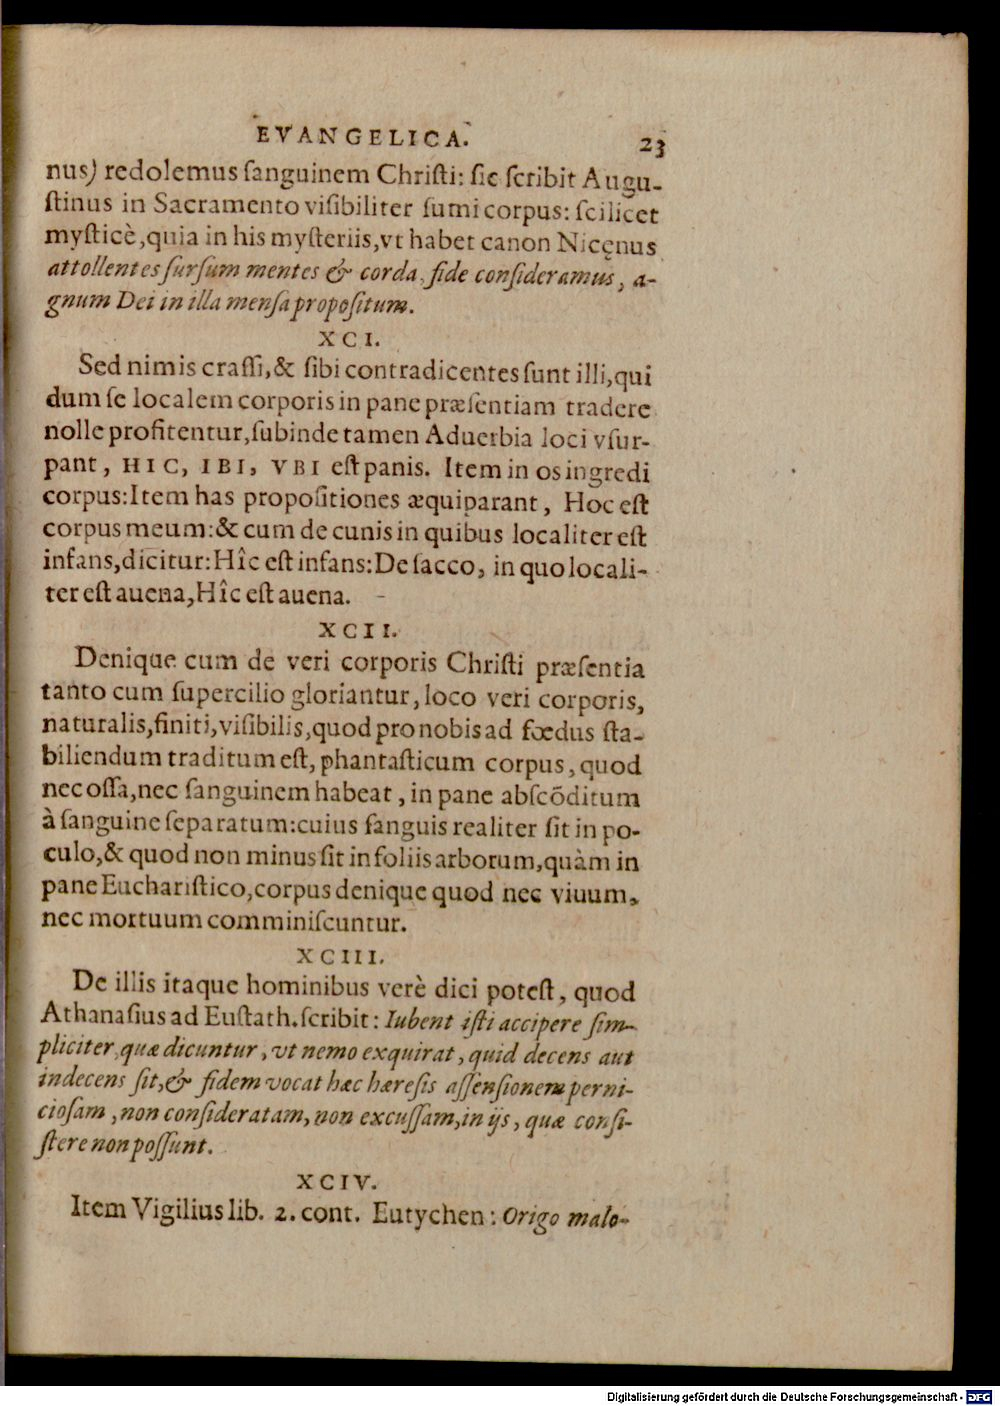 EVANGELICA. 23
nus) redolemus ſanguinem Chriſti: ſic ſcribit Augu-
ſtinus in Sacramento viſibiliter ſumi corpus: ſcilicet
myſticè, quia in his myſteriis, vt habet canon Nicęnus
attollentes ſurſum mentes & corda, fide conſideramus, a-
gnum Dei in illa menſa propoſitum.
XCI.
Sed nimis craſſi, & ſibi contradicentes ſunt illi, qui
dum ſe localem corporis in pane præſentiam tradere
nolle profitentur, ſubinde tamen Aduerbia loci vſur-
pant, HIC, IBI, VBI eſt panis. Item in os ingredi
corpus: Item has propoſitiones æquiparant, Hoc eſt
corpus meum: & cum de cunis in quibus localiter eſt
infans, dicitur: Hîc eſt infans: De ſacco, in quo locali-
ter eſt auena, Hîc eſt auena.
XCII.
Denique cum de veri corporis Chriſti præſentia
tanto cum ſupercilio gloriantur, loco veri corporis,
naturalis, finiti, viſibilis, quod pro nobis ad fœdus ſta-
biliendum traditum eſt, phantaſticum corpus, quod
nec oſſa, nec ſanguinem habeat, in pane abſcōditum
à ſanguine ſeparatum: cuius ſanguis realiter ſit in po-
culo, & quod non minus ſit in foliis arborum, quàm in
pane Euchariſtico, corpus denique quod nec viuum,
nec mortuum comminiſcuntur.
XCIII.
De illis itaque hominibus verè dici poteſt, quod
Athanaſius ad Euſtath. ſcribit: Iubent iſti accipere ſim-
pliciter, quæ dicuntur, vt nemo exquirat, quid decens aut
indecens ſit, & fidem vocat hæc hæreſis aſſenſionem perni-
cioſam, non conſideratam, non excuſſam, in ijs, quæ conſi-
ſtere non poſſunt.
XCIV.
Item Vigilius lib. 2. cont. Eutychen: Origo malo-
Digitalisierung gefördert durch die Deutsche Forschungsgemeinschaft - DFG